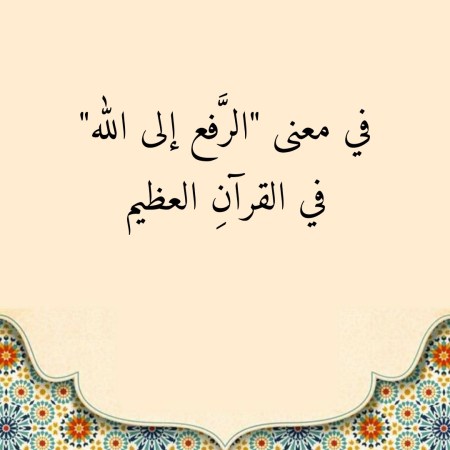 في معنى "الرَّفع إلى الله"
في القرآنِ العظيم